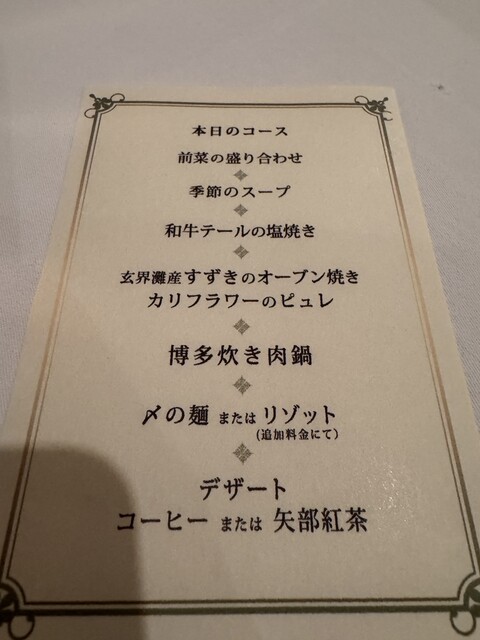 本日のコース
前菜の盛り合わせ
季節のスープ
和牛テールの塩焼き
玄界灘産すずきのオーブン焼き
カリフラワーのピュレ
博多炊き肉鍋
〆の麺 または リゾット
(追加料金にて)
デザート
コーヒー または 矢部紅茶